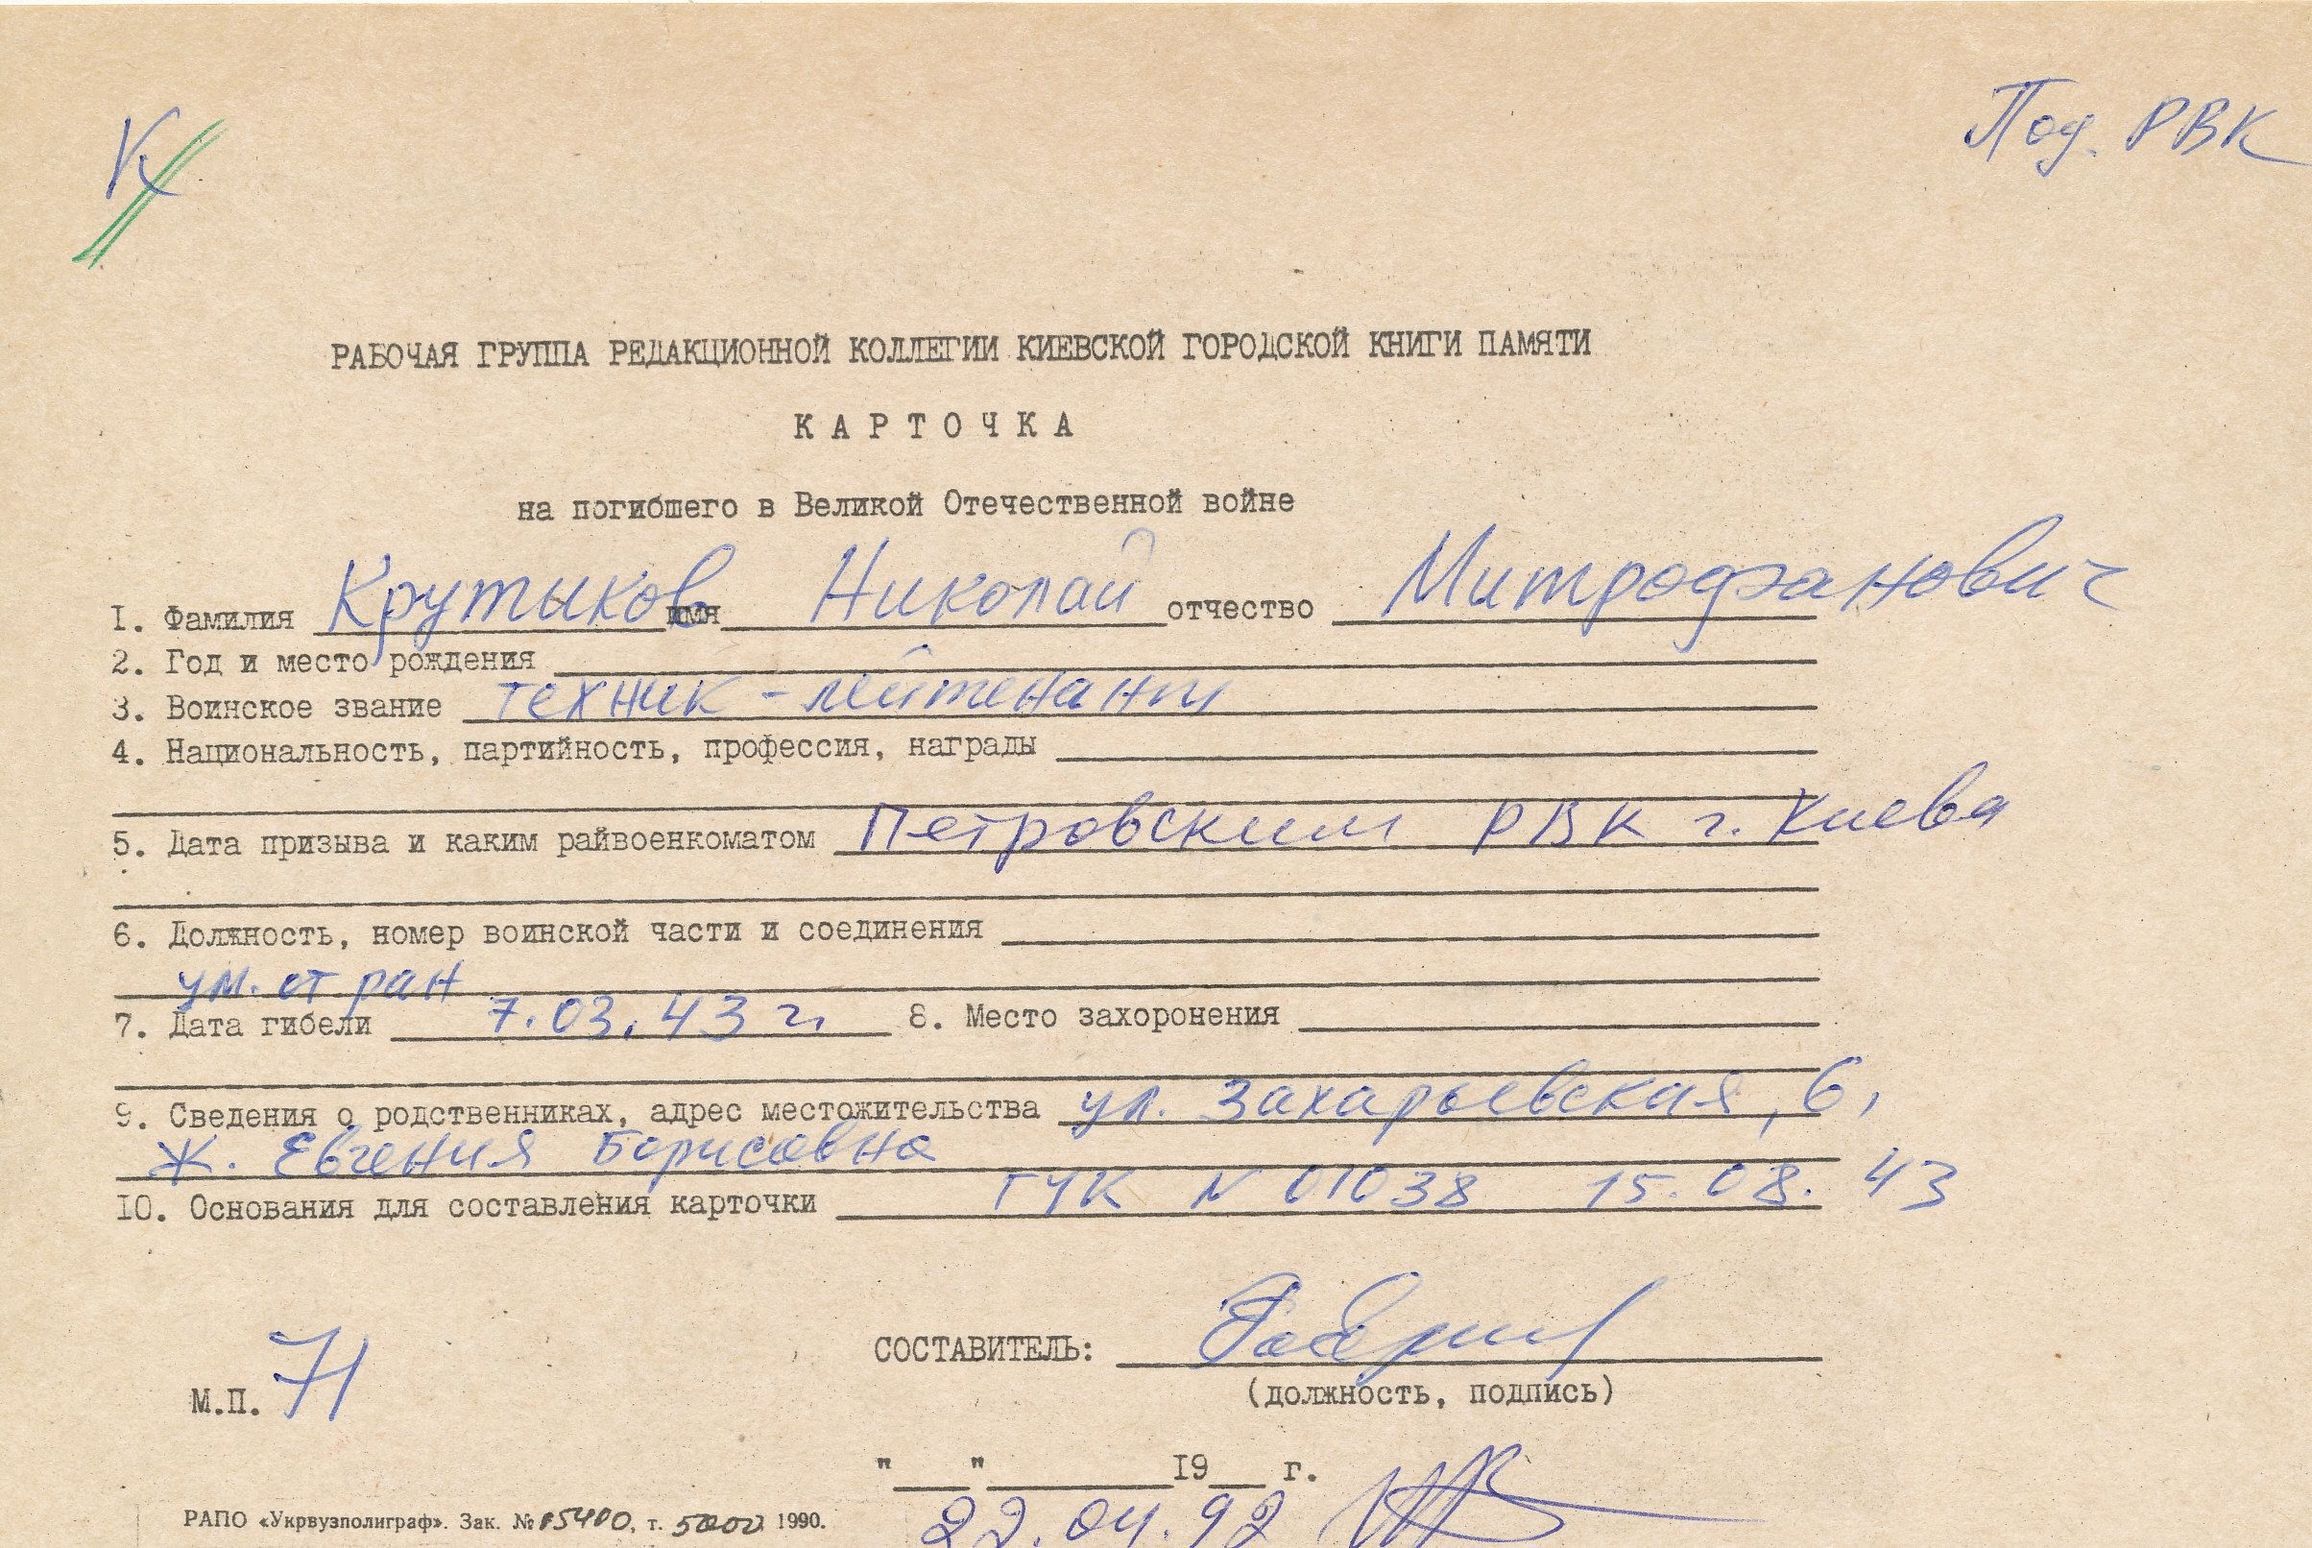 К
Под. РВК
РАБОЧАЯ ГРУППА РЕДАКЦИОННОЙ КОЛЛЕГИИ КИЕВСКОЙ ГОРОДСКОЙ КНИГИ ПАМЯТИ
КАРТОЧКА
на погибшего в Великой Отечественной войне
I. Фамилия Крутыков имя Николай отчество Митрофанович
2. Год и место рождения
3. Воинское звание техник-лейтенант
4. Национальность, партийность, профессия, награды
5. Дата призыва и каким райвоенкоматом Петровским РВК г. Киева
6. Должность, номер воинской части и соединения
ум. от ран
7. Дата гибели 7.03.43 г. 8. Место захоронения
9. Сведения о родственниках, адрес местожительства ул. Захарьевская, 6,
Ж. Евгения Борисовна
10. Основания для составления карточки ГУК N 01038 15.08.43
СОСТАВИТЕЛЬ:
(должность, подпись)
М.П. 71
"__"________19__ г.
22.04.92
РАПО «Укрвузполиграф». Зак. № 5400, т. 5000 1990.